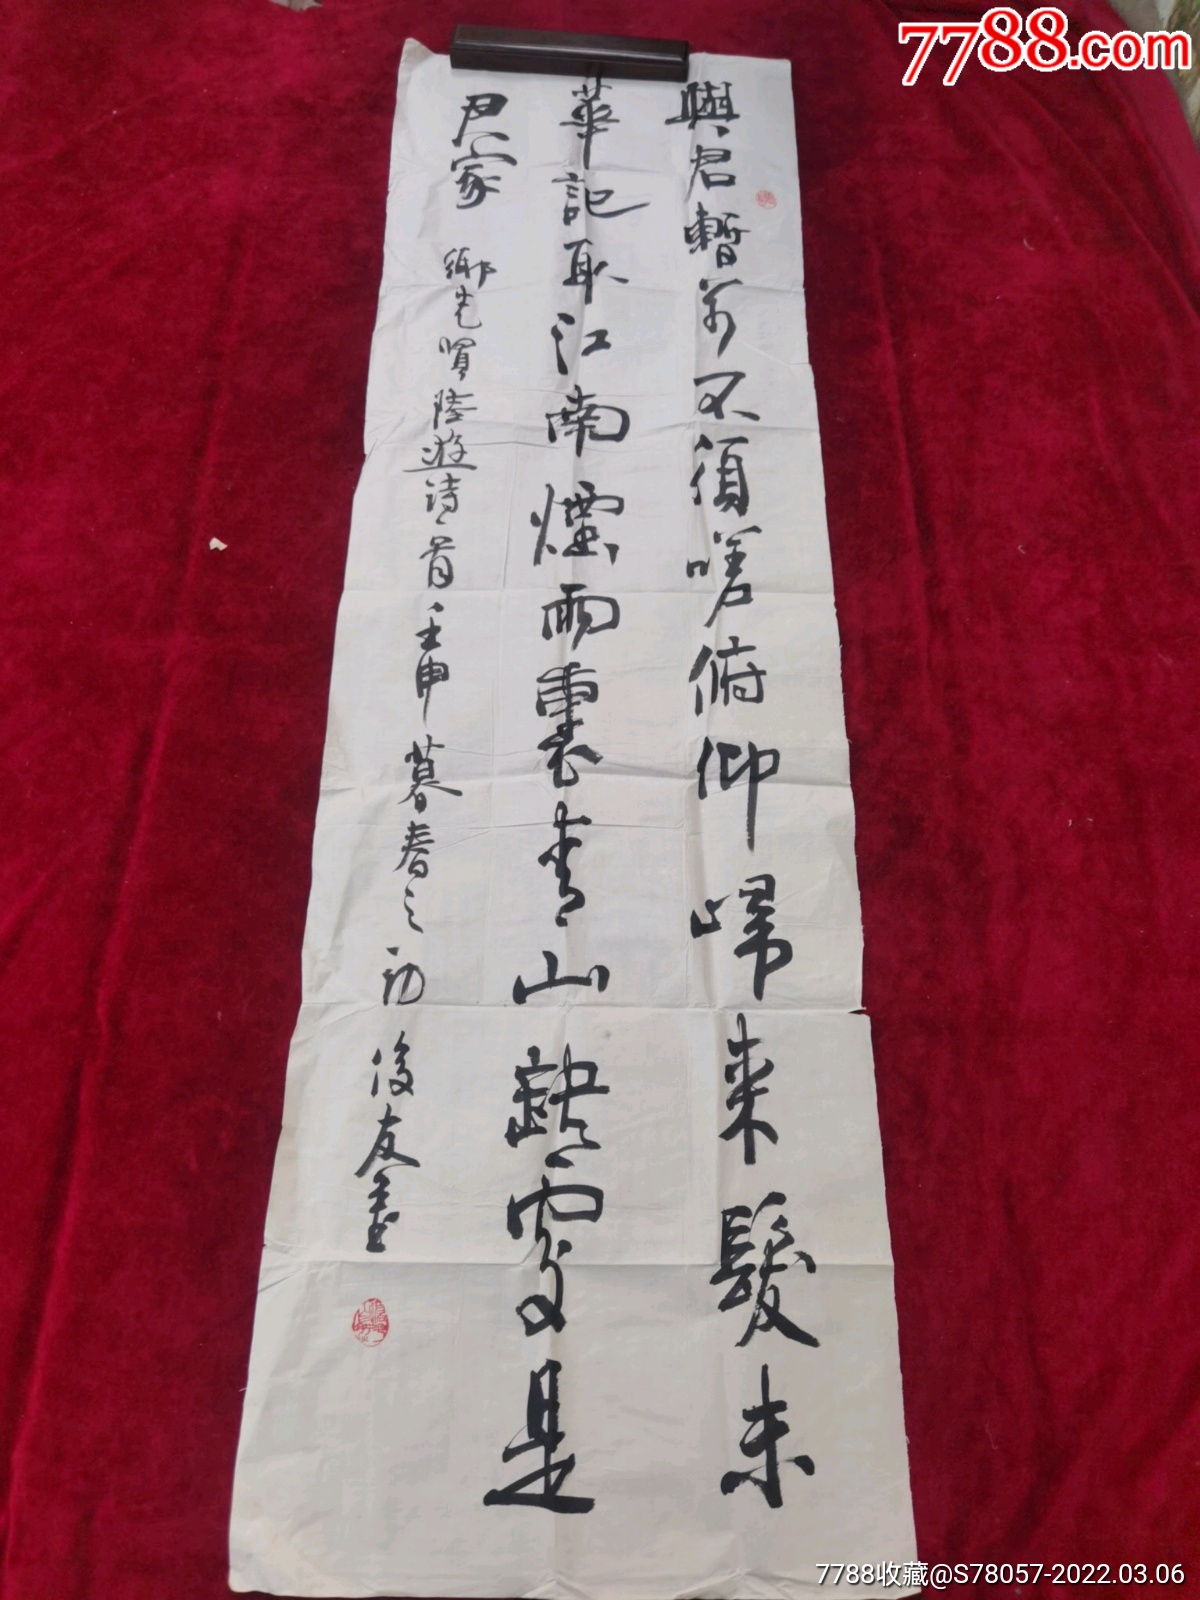 與君暫別不須嗟俯仰歸來髮未
華記取江南煙雨裏青山缺處是
君家
鄉先賢陸遊詩一首壬申暮春之初後友
7788.com
7788收藏@S78057-2022.03.06